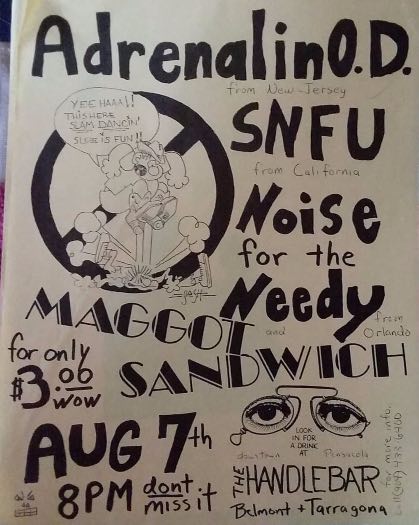 Adrenalin O.D.
from New-Jersey
YEE HAAA!!
THIS HERE
SLAM DANCIN'
IS FUN!!
SNFU
from California
Noise
for the
Needy
from
Orlando
and
MAGGOT
SANDWICH
for only
$3.00
wow
LOOK
IN FOR
A DRINK
AT
AUG 7th
8PM dont
miss it
downtown Pensacola
THE HANDLEBAR
Belmont + Tarragona
for more info.
call (904) 433-6400